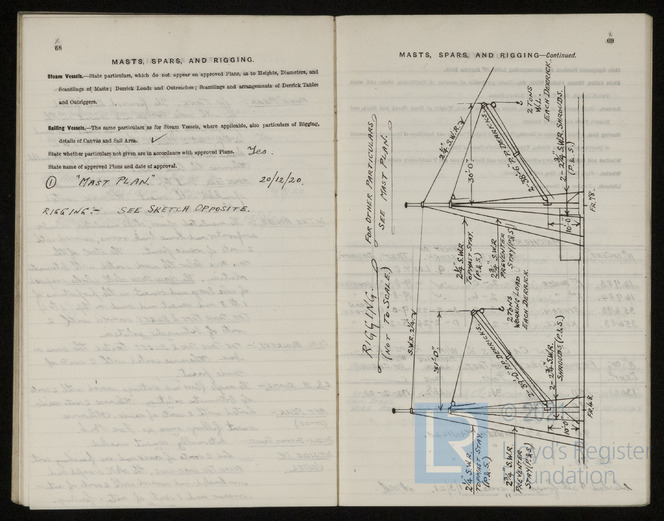 68
MASTS, SPARS, AND RIGGING.
Steam Vessels.—State particulars, which do not appear on approved Plans, as to Heights, Diameters, and
Scantlings of Masts; Derrick Loads and Outreaches; Scantlings and arrangements of Derrick Tables
and Outriggers.
Sailing Vessels.—The same particulars as for Steam Vessels, where applicable, also particulars of Rigging,
details of Canvas and Sail Area.
State whether particulars not given are in accordance with approved Plans. Yes.
State name of approved Plans and date of approval.
① "MAST PLAN." 20/12/20.
RIGGING:- SEE SKETCH OPPOSITE.
69
MASTS, SPARS, AND RIGGING—Continued.
RIGGING.
(NOT TO SCALE.)
FOR OTHER PARTICULARS
SEE MAST PLAN.
S.W.R.
36'-0"
2 TONS
W.L.
EACH DERRICK.
2- 2¾" S.W.R. SHROUDS.
(P. & S.)
10'-0"
FR. 98.
2¼" S.W.R.
TOPMAST STAY.
(P. & S.)
2¾" S.W.R.
PREVENTER
STAY (P. & S.)
S.W.R. 2¼"
2 TONS
WORKING LOAD
EACH DERRICK.
2- 2¾" S.W.R.
SHROUDS (P. & S.)
10'-0"
2¼" S.W.R.
TOPMAST STAY.
(P. & S.)
2¾" S.W.R.
PREVENTER
STAY (P. & S.)
LR
© 20
yd's Register
undation